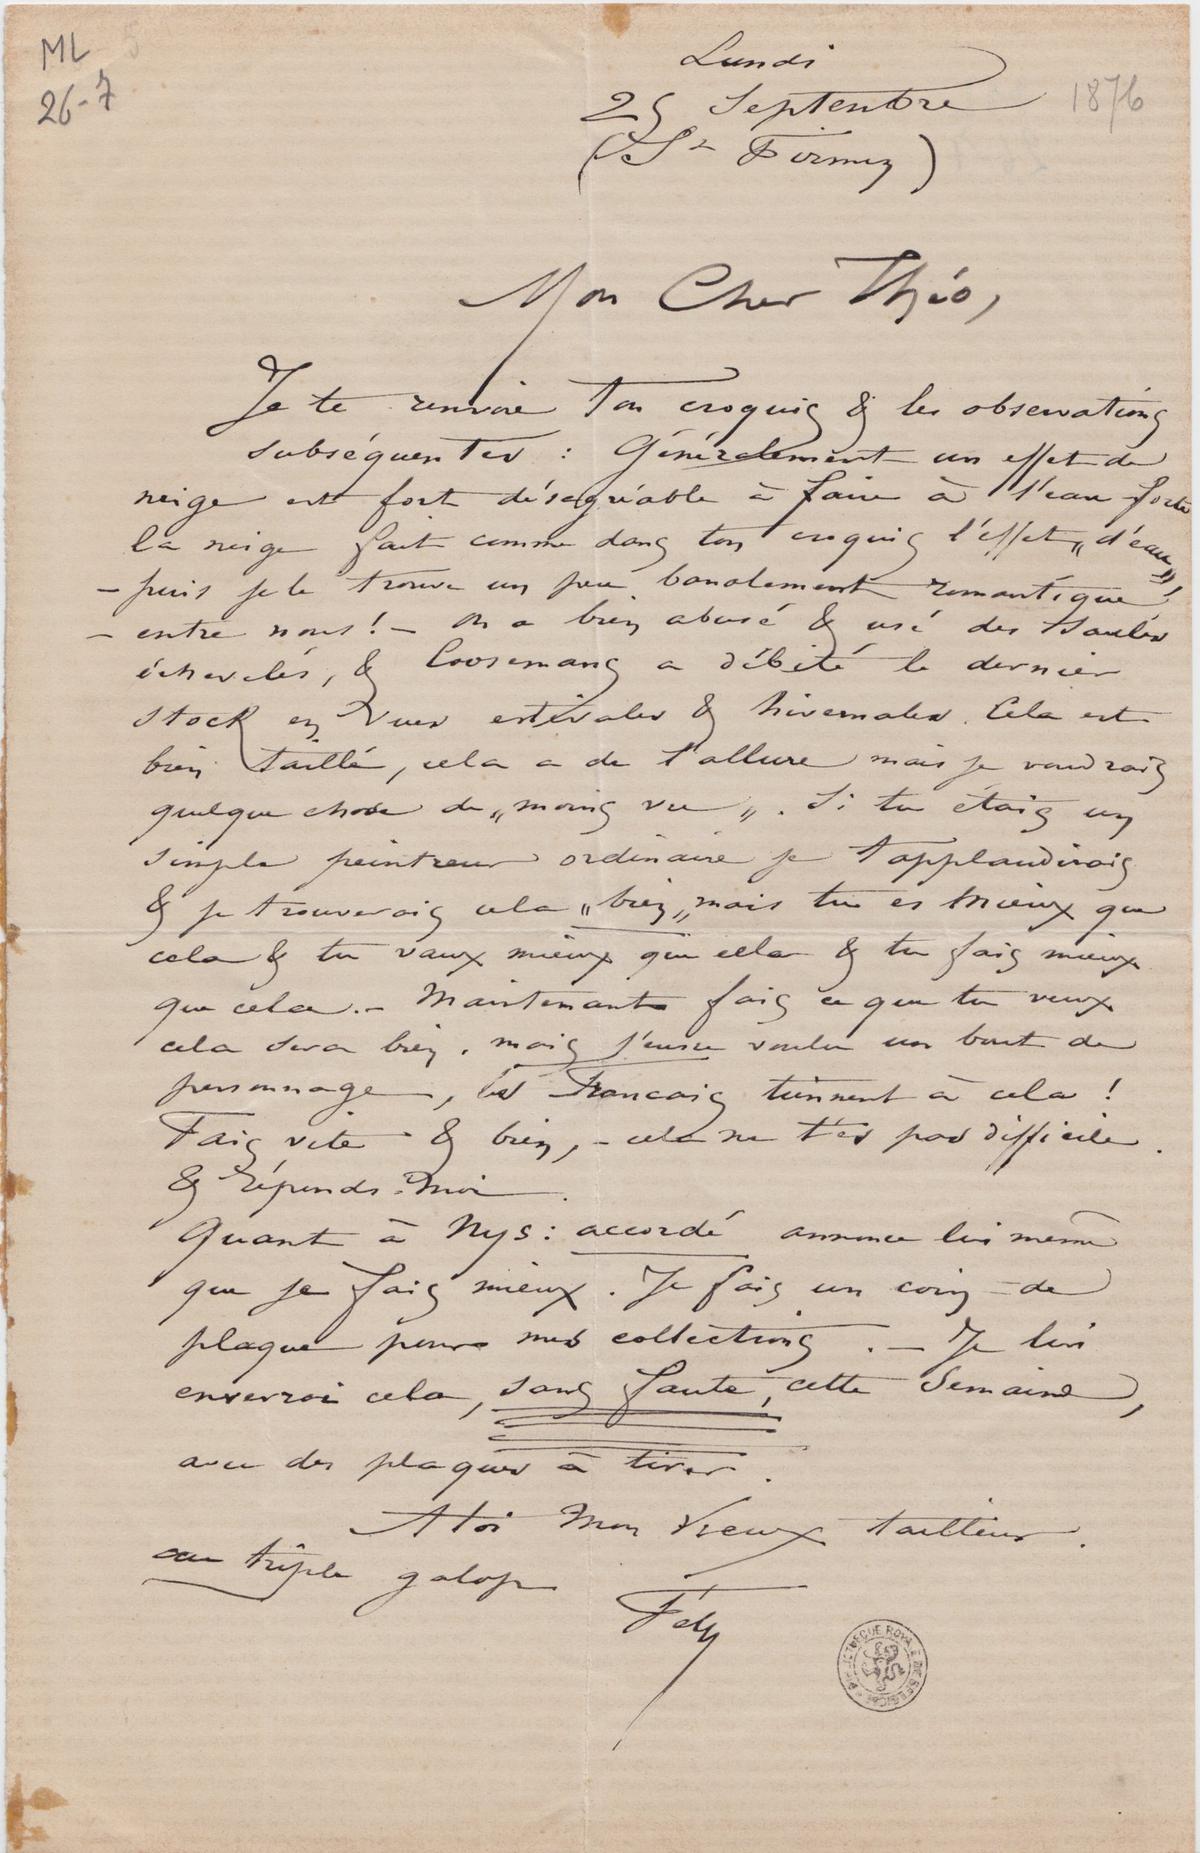 ML
26-7
Lundi
25 Septembre
1876
(St Firmin)
Mon Cher Théo,
Je te renvoie ton croquis & les observations
subséquentes : Généralement un effet de
neige est fort désagréable à faire à l'eau forte
la neige fait comme dans ton croquis l'effet „d'eau„
– puis je le trouve un peu banalement romantique,
– entre nous! – on a bien abusé & usé des saules
échevelés, & Coosemans a débité le dernier
stock en vues estivales & hivernales. Cela est
bien taillé, cela a de l'allure mais je voudrais
quelque chose de „moins vu„. Si tu étais un
simple peintreur ordinaire je t'applaudirais
& je trouverais cela „bien„ mais tu es mieux que
cela & tu vaux mieux que cela & tu fais mieux
que cela. – Maintenant fais ce que tu veux
cela sera bien. mais j'eusse voulu un bout de
personnage, les Francais tiennent à cela !
Fais vite & bien, – cela ne t'es pas difficile.
& réponds-moi.
Quant à Nys : accordé annonce lui même
que je fais mieux. Je fais un coin de
plaque pour mes collections. – Je lui
enverrai cela, sans faute, cette semaine,
avec des plaques à tirer.
A toi mon vieux tailleur.
au triple galop
Fély
BIBLIOTHEQUE ROYALE DE BELGIQUE